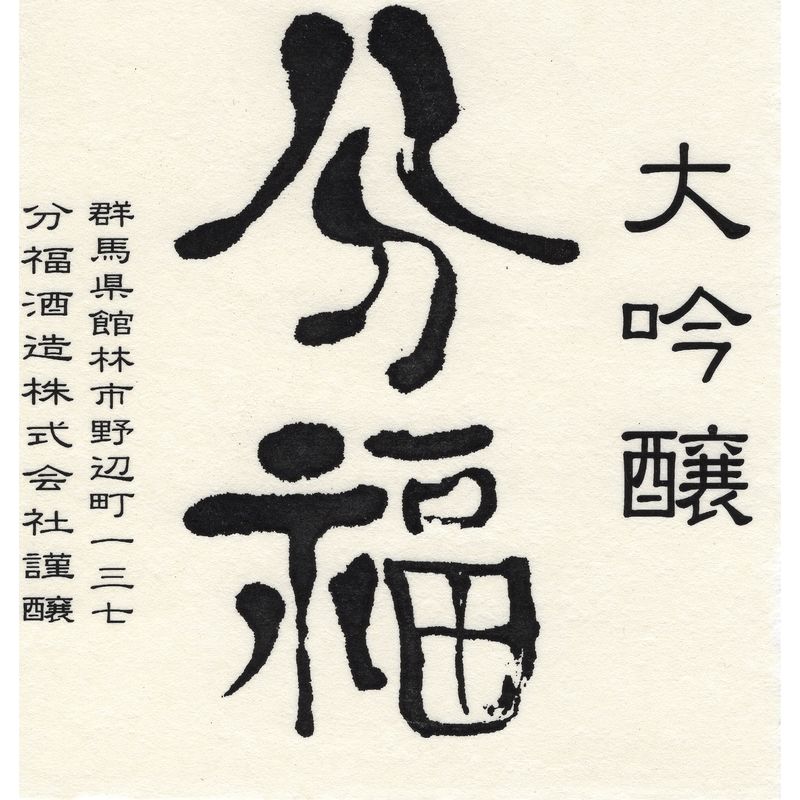 大吟醸
分福
群馬県館林市野辺町一三七
分福酒造株式会社謹醸